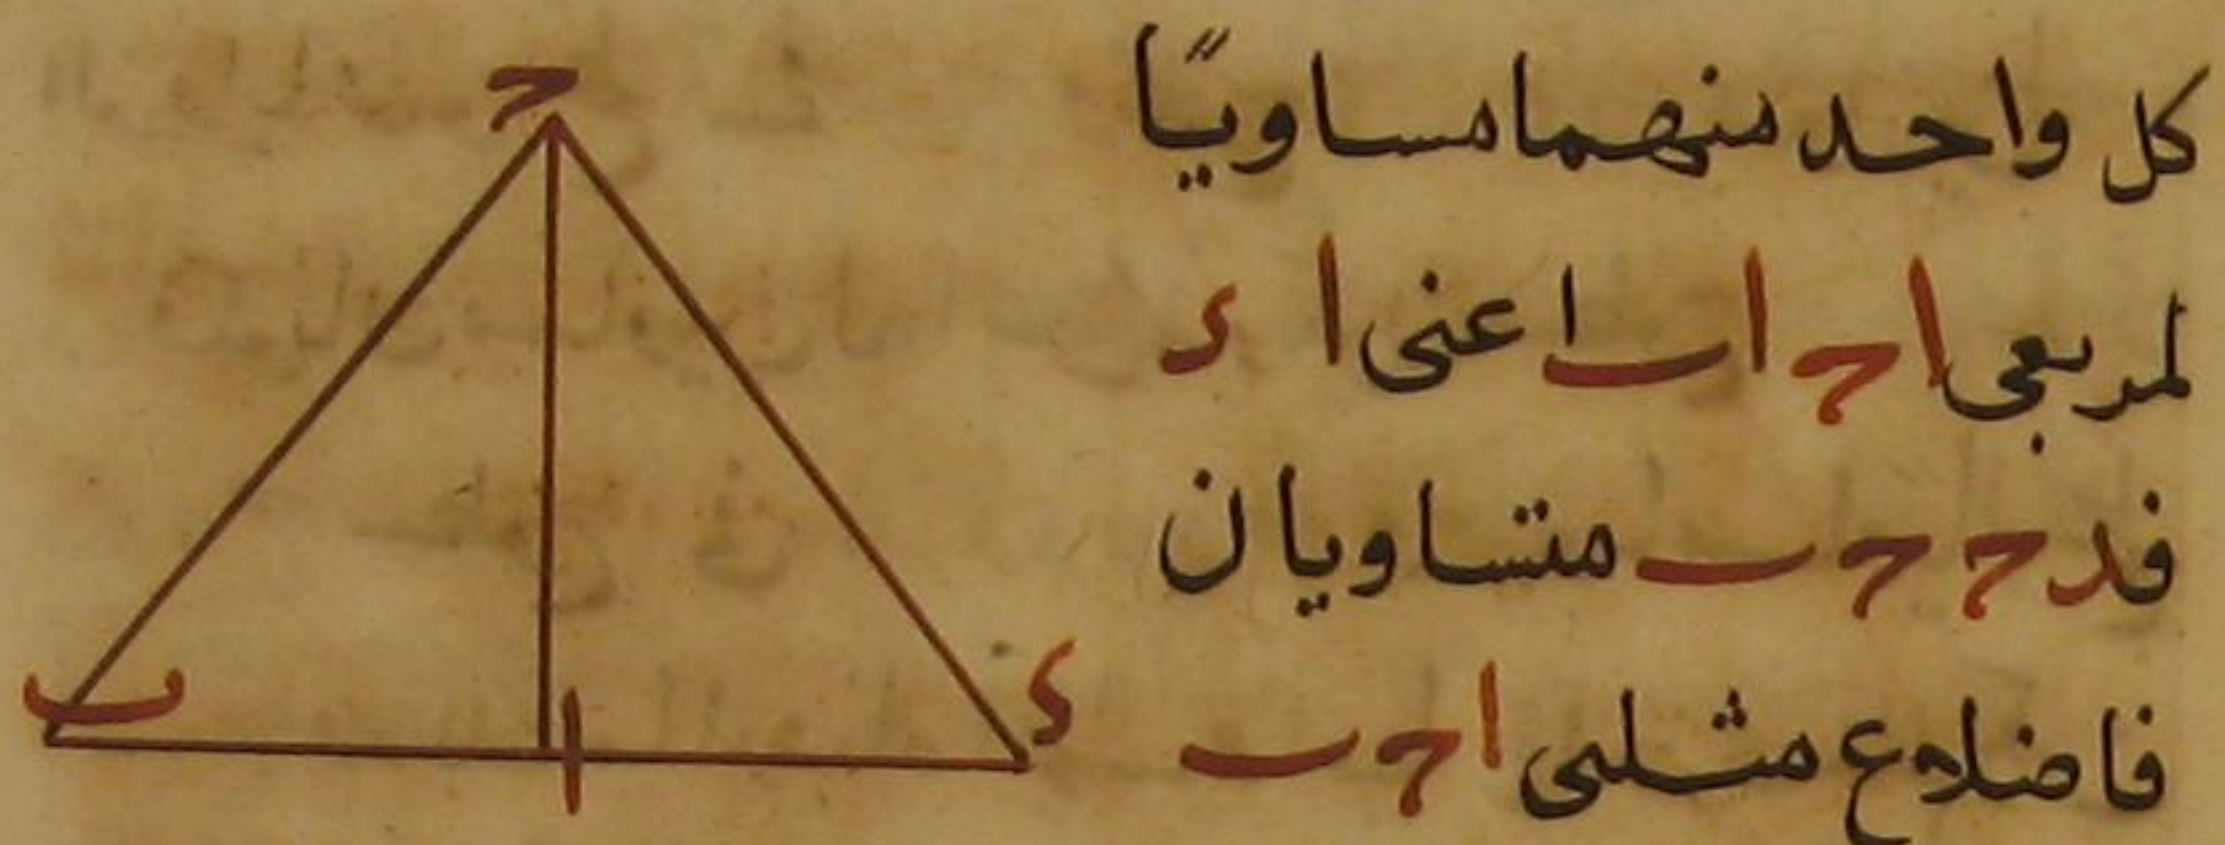 كل واحد منهما مساويًا
لمربعي اح اب اعنى ا د
فد ح ح ب متساويان
فاضلاع مثلثي ا ح ب
ح
ب
ا
د